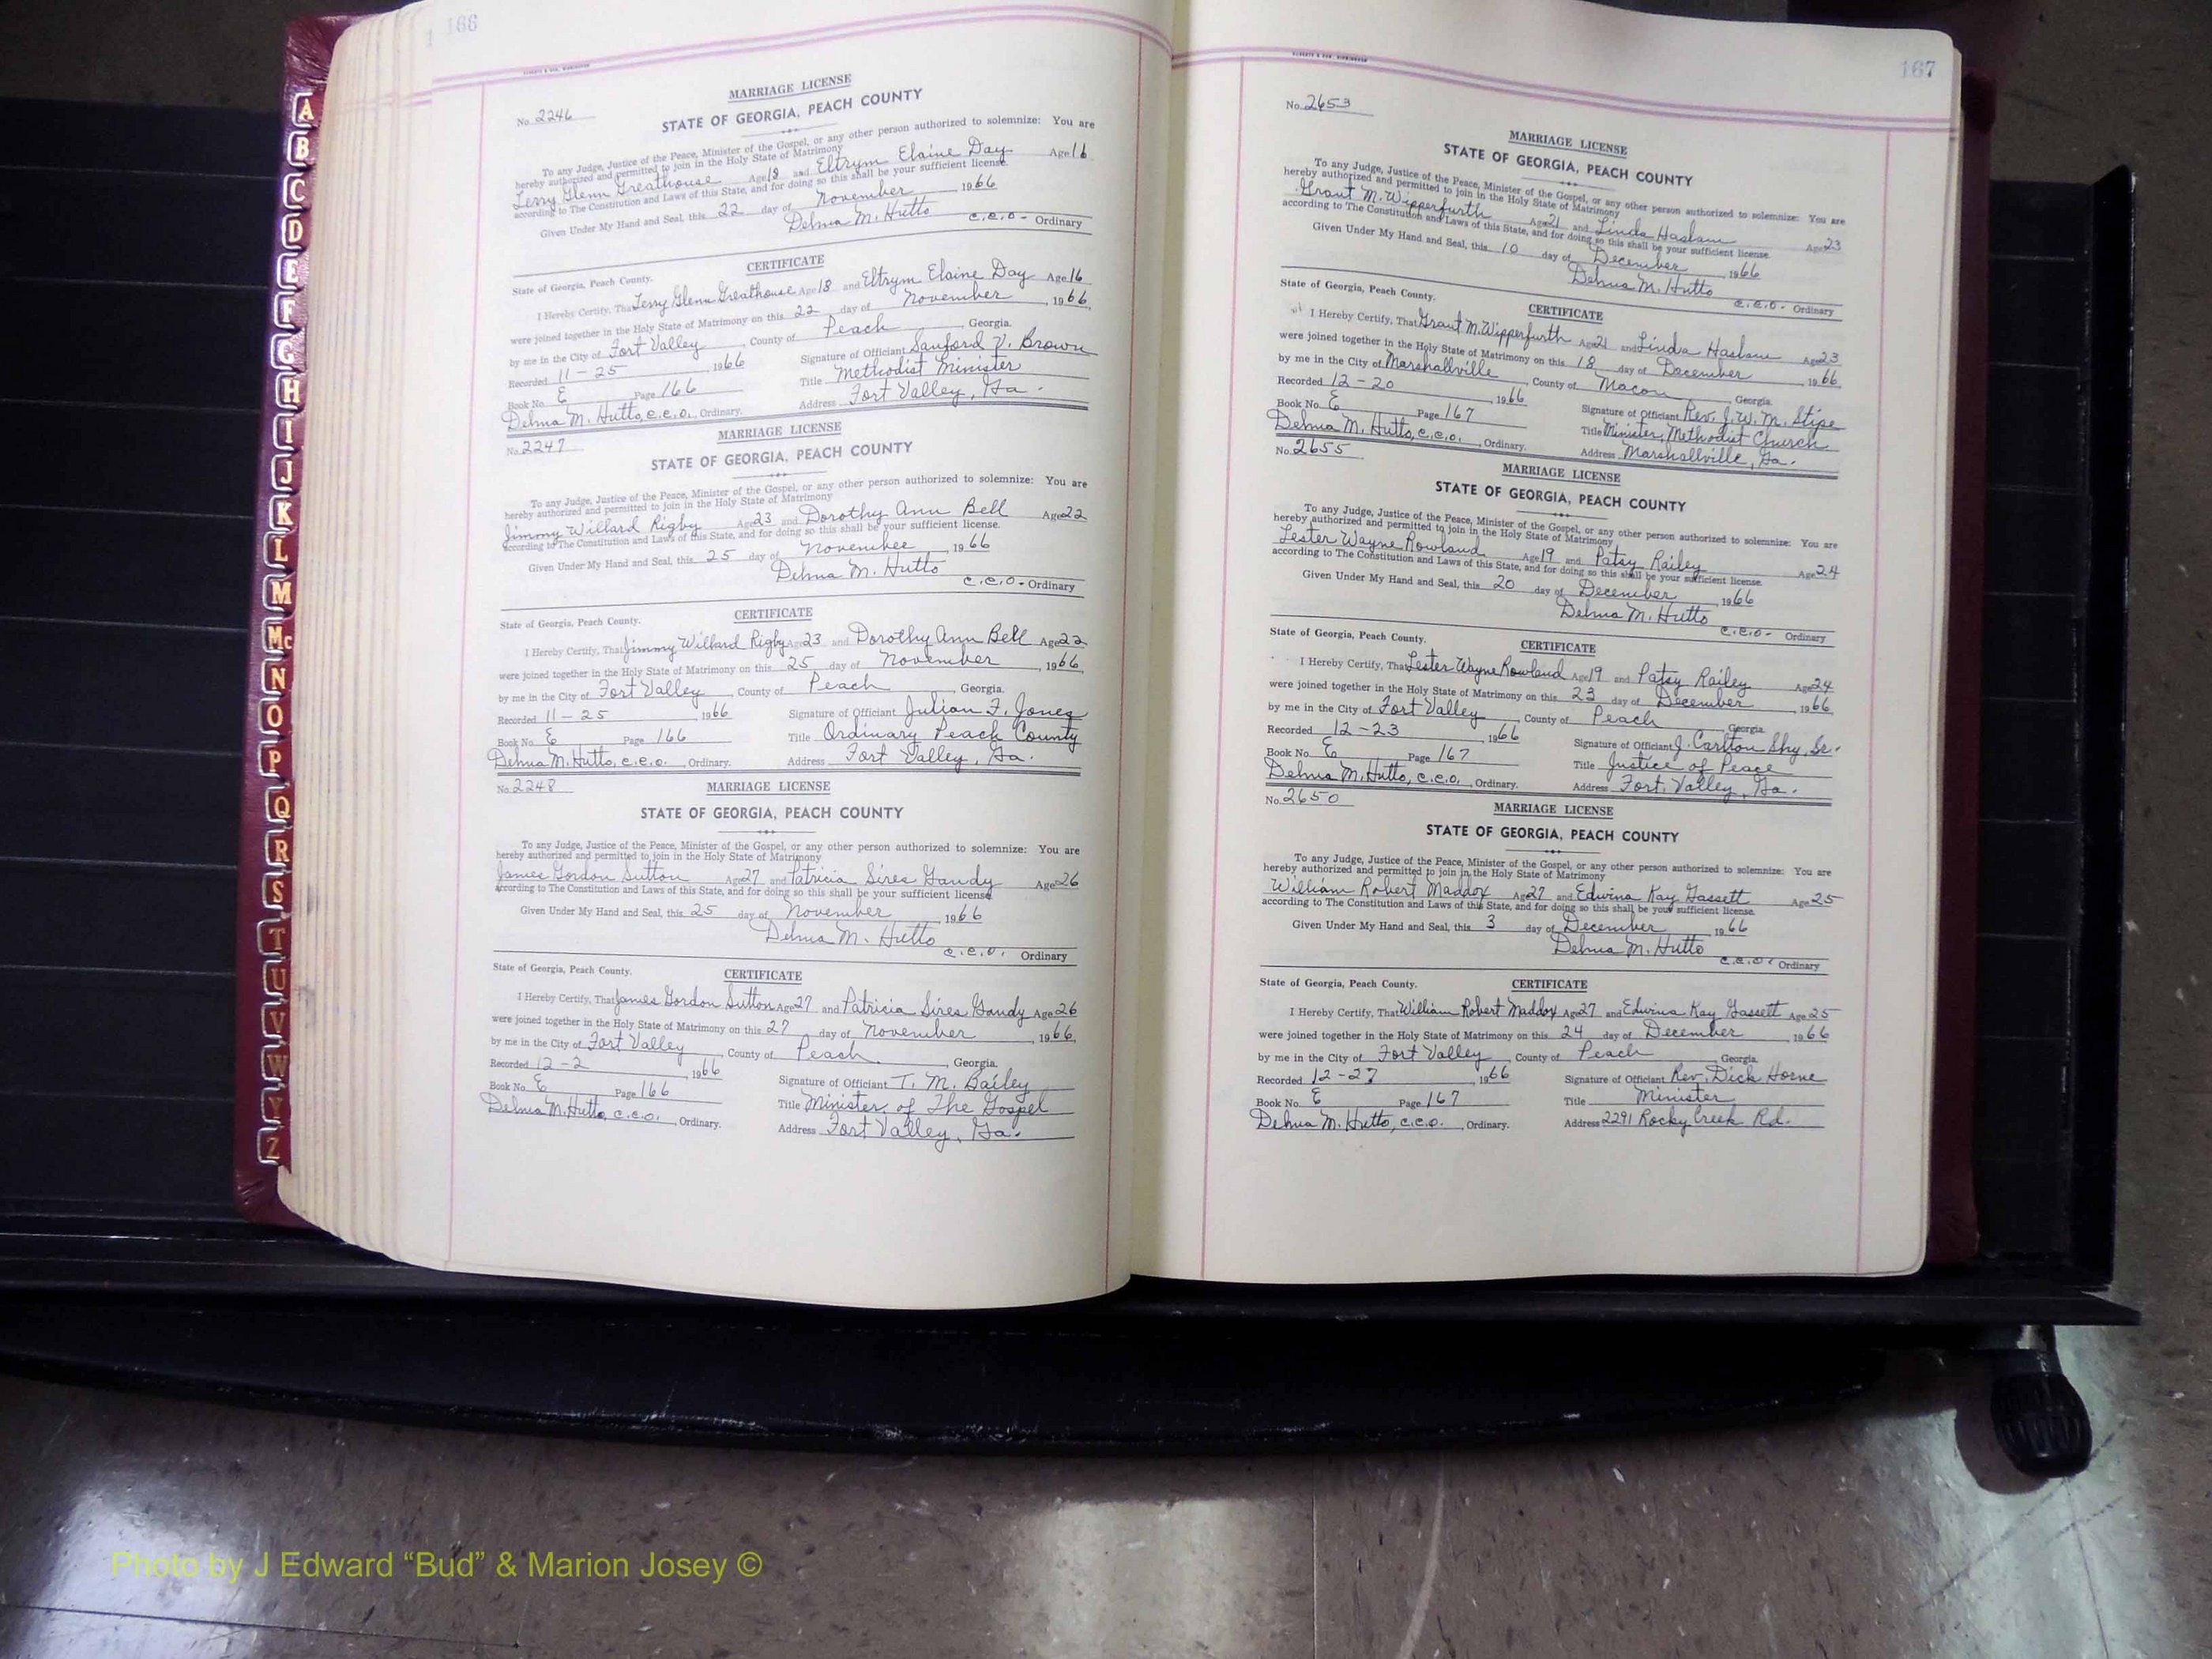 166
MARRIAGE LICENSE
No. 2246
STATE OF GEORGIA, PEACH COUNTY
To any Judge, Justice of the Peace, Minister of the Gospel, or any other person authorized to solemnize: You are
hereby authorized and permitted to join in the Holy State of Matrimony
Terry Glenn Greathouse Age 18 and Eltrym Elaine Day Age 16
according to The Constitution and Laws of this State, and for doing so this shall be your sufficient license.
Given Under My Hand and Seal, this 22 day of November 1966
Delma M. Hutto
C.C.O. - Ordinary
CERTIFICATE
State of Georgia, Peach County.
I Hereby Certify, That Terry Glenn Greathouse Age 18 and Eltrym Elaine Day Age 16
were joined together in the Holy State of Matrimony on this 22 day of November, 1966,
by me in the City of Fort Valley, County of Peach, Georgia.
Recorded 11-25 1966 Signature of Officiant Sanford V. Brown
Book No. E Page 166 Title Methodist Minister
Delma M. Hutto, C.C.O., Ordinary. Address Fort Valley, Ga.
No. 2247
MARRIAGE LICENSE
STATE OF GEORGIA, PEACH COUNTY
To any Judge, Justice of the Peace, Minister of the Gospel, or any other person authorized to solemnize: You are
hereby authorized and permitted to join in the Holy State of Matrimony
Jimmy Willard Rigby Age 23 and Dorothy Ann Bell Age 22
according to The Constitution and Laws of this State, and for doing so this shall be your sufficient license.
Given Under My Hand and Seal, this 25 day of November, 1966
Delma M. Hutto
C.C.O. - Ordinary
CERTIFICATE
State of Georgia, Peach County.
I Hereby Certify, That Jimmy Willard Rigby Age 23 and Dorothy Ann Bell Age 22
were joined together in the Holy State of Matrimony on this 25 day of November, 1966,
by me in the City of Fort Valley, County of Peach, Georgia.
Recorded 11-25 1966 Signature of Officiant Julian F. Jones
Book No. E Page 166 Title Ordinary Peach County
Delma M. Hutto, C.C.O., Ordinary. Address Fort Valley, Ga.
No. 2248
MARRIAGE LICENSE
STATE OF GEORGIA, PEACH COUNTY
To any Judge, Justice of the Peace, Minister of the Gospel, or any other person authorized to solemnize: You are
hereby authorized and permitted to join in the Holy State of Matrimony
James Gordon Sutton Age 27 and Patricia Sires Gandy Age 26
according to The Constitution and Laws of this State, and for doing so this shall be your sufficient license.
Given Under My Hand and Seal, this 25 day of November, 1966
Delma M. Hutto
C.C.O. Ordinary
State of Georgia, Peach County.
CERTIFICATE
I Hereby Certify, That James Gordon Sutton Age 27 and Patricia Sires Gandy Age 26
were joined together in the Holy State of Matrimony on this 27 day of November 1966,
by me in the City of Fort Valley, County of Peach, Georgia.
Recorded 12-2 1966 Signature of Officiant T. M. Bailey
Book No. E Page 166 Title Minister of The Gospel
Delma M. Hutto, C.C.O., Ordinary. Address Fort Valley, Ga.
167
No. 2653
MARRIAGE LICENSE
STATE OF GEORGIA, PEACH COUNTY
To any Judge, Justice of the Peace, Minister of the Gospel, or any other person authorized to solemnize: You are
hereby authorized and permitted to join in the Holy State of Matrimony
Grant M. Wipperfurth Age 21 and Linda Haslam Age 23
according to The Constitution and Laws of this State, and for doing so this shall be your sufficient license.
Given Under My Hand and Seal, this 10 day of December, 1966
Delma M. Hutto
C.C.O. - Ordinary
State of Georgia, Peach County.
CERTIFICATE
I Hereby Certify, That Grant M. Wipperfurth Age 21 and Linda Haslam Age 23
were joined together in the Holy State of Matrimony on this 18 day of December, 1966,
by me in the City of Marshallville, County of Macon, Georgia.
Recorded 12-20, 1966 Signature of Officiant Rev. J. W. M. Stipe
Book No. E Page 167 Title Minister, Methodist Church
Delma M. Hutto, C.C.O., Ordinary. Address Marshallville, Ga.
No. 2655
MARRIAGE LICENSE
STATE OF GEORGIA, PEACH COUNTY
To any Judge, Justice of the Peace, Minister of the Gospel, or any other person authorized to solemnize: You are
hereby authorized and permitted to join in the Holy State of Matrimony
Lester Wayne Rowland Age 19 and Patsy Railey Age 24
according to The Constitution and Laws of this State, and for doing so this shall be your sufficient license.
Given Under My Hand and Seal, this 20 day of December, 1966
Delma M. Hutto
C.C.O. - Ordinary
State of Georgia, Peach County.
CERTIFICATE
I Hereby Certify, That Lester Wayne Rowland Age 19 and Patsy Railey Age 24
were joined together in the Holy State of Matrimony on this 23 day of December, 1966
by me in the City of Fort Valley, County of Peach, Georgia.
Recorded 12-23, 1966 Signature of Officiant J. Carlton Shy, Sr.
Book No. E Page 167 Title Justice of Peace
Delma M. Hutto, C.C.O., Ordinary. Address Fort Valley, Ga.
No. 2650
MARRIAGE LICENSE
STATE OF GEORGIA, PEACH COUNTY
To any Judge, Justice of the Peace, Minister of the Gospel, or any other person authorized to solemnize: You are
hereby authorized and permitted to join in the Holy State of Matrimony
William Robert Maddox Age 27 and Edwina Kay Gassett Age 25
according to The Constitution and Laws of this State, and for doing so this shall be your sufficient license.
Given Under My Hand and Seal, this 3 day of December, 1966
Delma M. Hutto
C.C.O. Ordinary
State of Georgia, Peach County.
CERTIFICATE
I Hereby Certify, That William Robert Maddox Age 27 and Edwina Kay Gassett Age 25
were joined together in the Holy State of Matrimony on this 24 day of December, 1966
by me in the City of Fort Valley, County of Peach, Georgia.
Recorded 12-27, 1966 Signature of Officiant Rev. Dick Horne
Book No. E Page 167 Title Minister
Delma M. Hutto, C.C.O., Ordinary. Address 2291 Rocky Creek Rd.
A
B
C
D
E
F
G
H
I
J
K
L
M
Mc
N
O
P
Q
R
S
T
U
V
W
Y
Z
Photo by J Edward “Bud” & Marion Josey ©